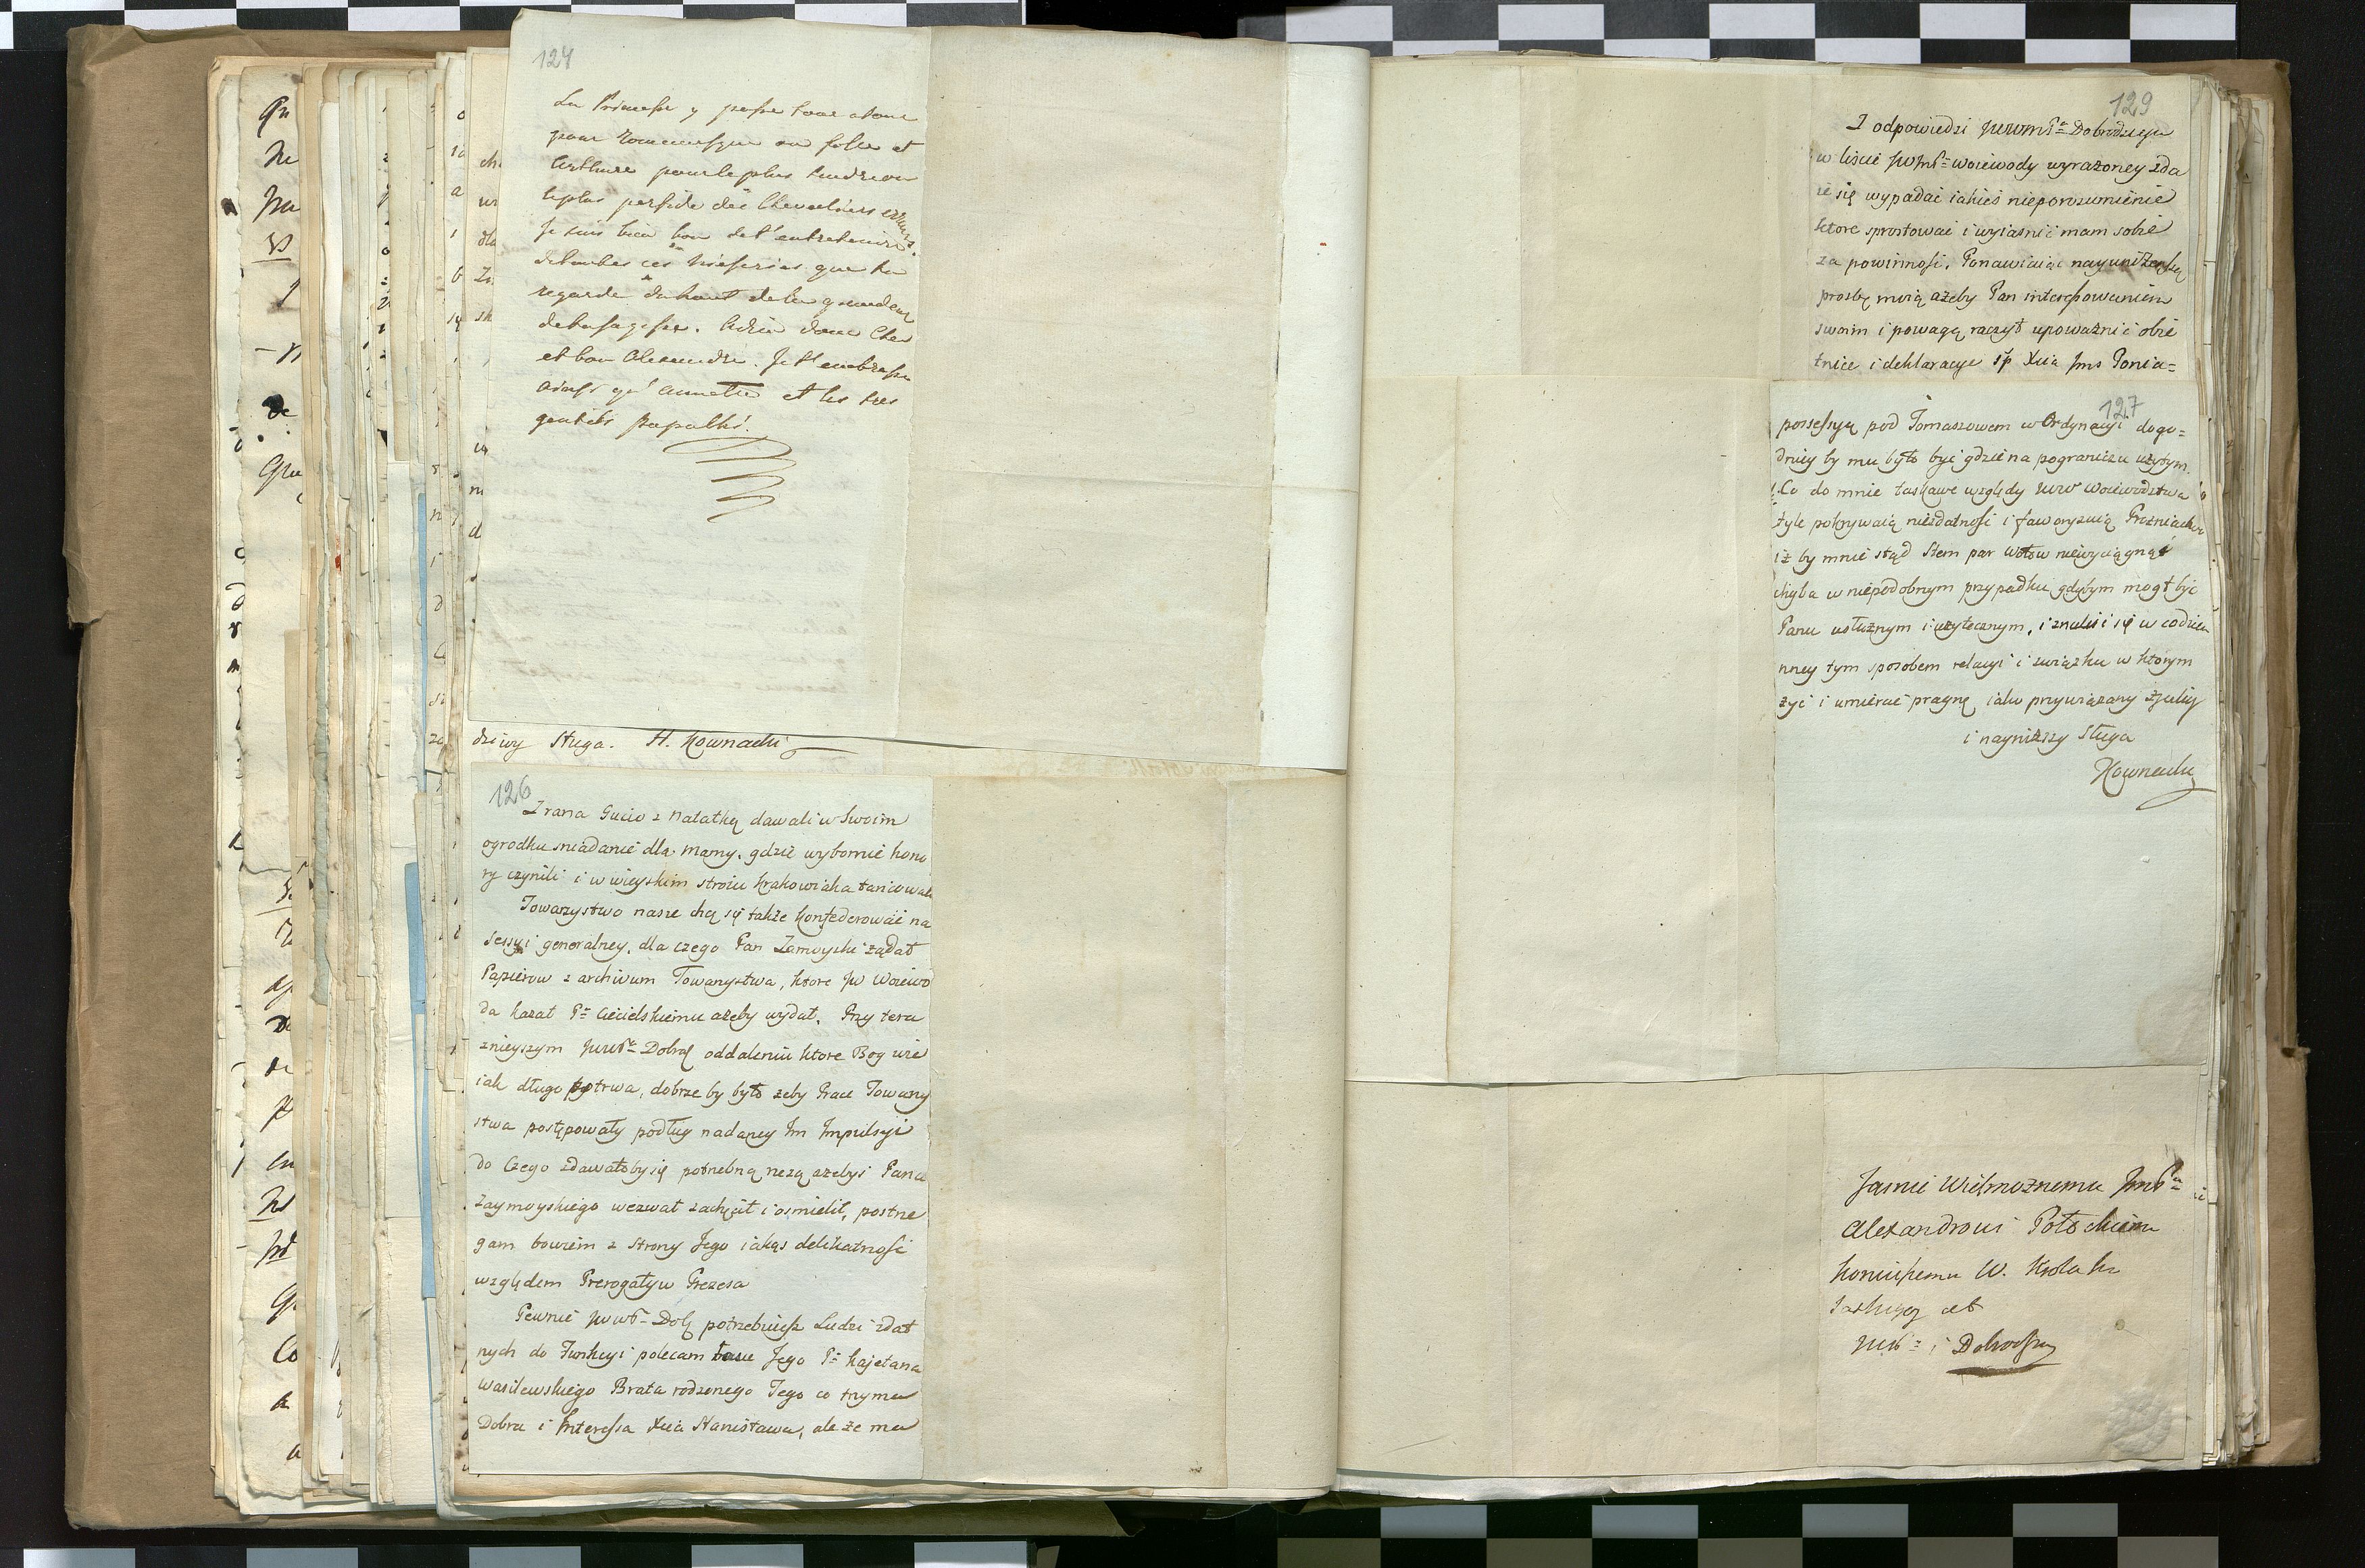 124
La Princesse y passe tour a tour
pour Romanesque ou folle et
Arthur pour le plus tendre ou
le plus perfide des Chevaliers errants.
Je suis bien bon de t'entretenir
de toutes ces miseries que tu
regarde du haut de la grandeur
de ta sagesse. Adieu donc Cher
et bon Alexandre. Je t'embrasse
ainsi qu'Annette et les tres
gentils
dziwy sługa. H. Kownacki
126
Z rana Gucio z Natalką dawali w swoim
ogrodku sniadanie dla Mamy, gdzie wybornie hono
ry czynili i w wieyskim stroiu Krakowiaka tańcowali
Towarzystwo nasze chce się także konfederować na
Sessyi generalney, dla czego Pan Zamoyski żądał
Papierow z archiwum Towarzystwa, ktore JW Woiewo
da kazał Pu Ciecielskiemu ażeby wydał. Przy tera
znieyszym JWWPa Dobra oddaleniu ktore Bog wie
iak długo potrwa, dobrze by było żeby Prace Towarzy
stwa postępowały podług nadaney Im Impulsyi
do Czego zdawałoby się potrzebną rzeczą ażebyś Pana
Zaymoyskiego wezwał zachęcił i osmielił, postrze
gam bowiem z strony Jego iakąs delikatność
względem Prerogatyw Prezesa
Pewnie JWWP Dob potrzebuiesz Ludzi zdat
nych do Funkcyi polecam łasce Jego Pa Kajetana
Wasilewskiego Brata rodzonego Tego co trzyma
Dobra i Interessa Xcia Stanisława, ale że ma
129
Z odpowiedzi JWWPa Dobrodzieja
w liscie JWPa Woiewody wyrażoney zda
ie się wypadać iakieś nieporozumienie
ktore sprostować i wyiasnić mam sobie
za powinność. Ponawiaiąc nayuniżeńszą
prozbę moią ażeby Pan interessowaniem
swoim i powagą raczył upoważnić obie
tnice i deklaracye sp Xcia Jmć Ponia=
127
possessyą pod Tomaszowem w Ordynacyi dogo=
dniey by mu było być gdzie na pograniczu użytym.
Co do mnie łaskawe względy JWW Woiewodztwa
tyle pokrywaią niezdatność i faworyzuią Prozniactwo
iż by mnie stąd siem par wołow niewyciągnął
chyba w niepodobnym przypadku gdybym mogł być
Panu usłużnym i użytecznym, i znaleść się w codzien
nney tym sposobem relacyi i związku w ktorym
żyć i umierać pragnę iako przywiązany szczerze
i nayniższy sługa
Kownacki
Jasnie Wielmożnemu JmPu
Alexandrowi Potockiemu
Koniuszemu W. Krolestwa
JWP i Dobrodzieiowi